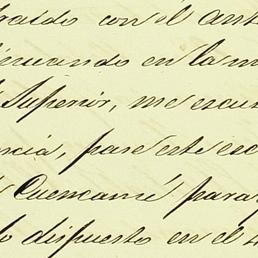 traido con el ant
inuando en la m
Superior, me escu
ncia, pase este esc
Cuencamé para
lo dispuesto en el